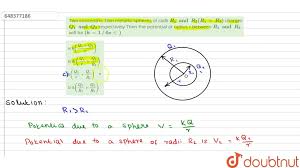 648377186
Two concentric, thin metallic spheres of radii R₁ and R₂ (R₁ > R₂) charges
Q₁ and Q₂ respectively Then the potential at radius r between R₁ and R₂
will be (k = 1/4πε₀)
Q₁
R₁
R₂
Q₂
r
Solution:
R₁>R₂
Potential due to a sphere V = kQ/r
Potential due to a sphere of radii R₂ is V₂ = kQ₂/r
doubtnut